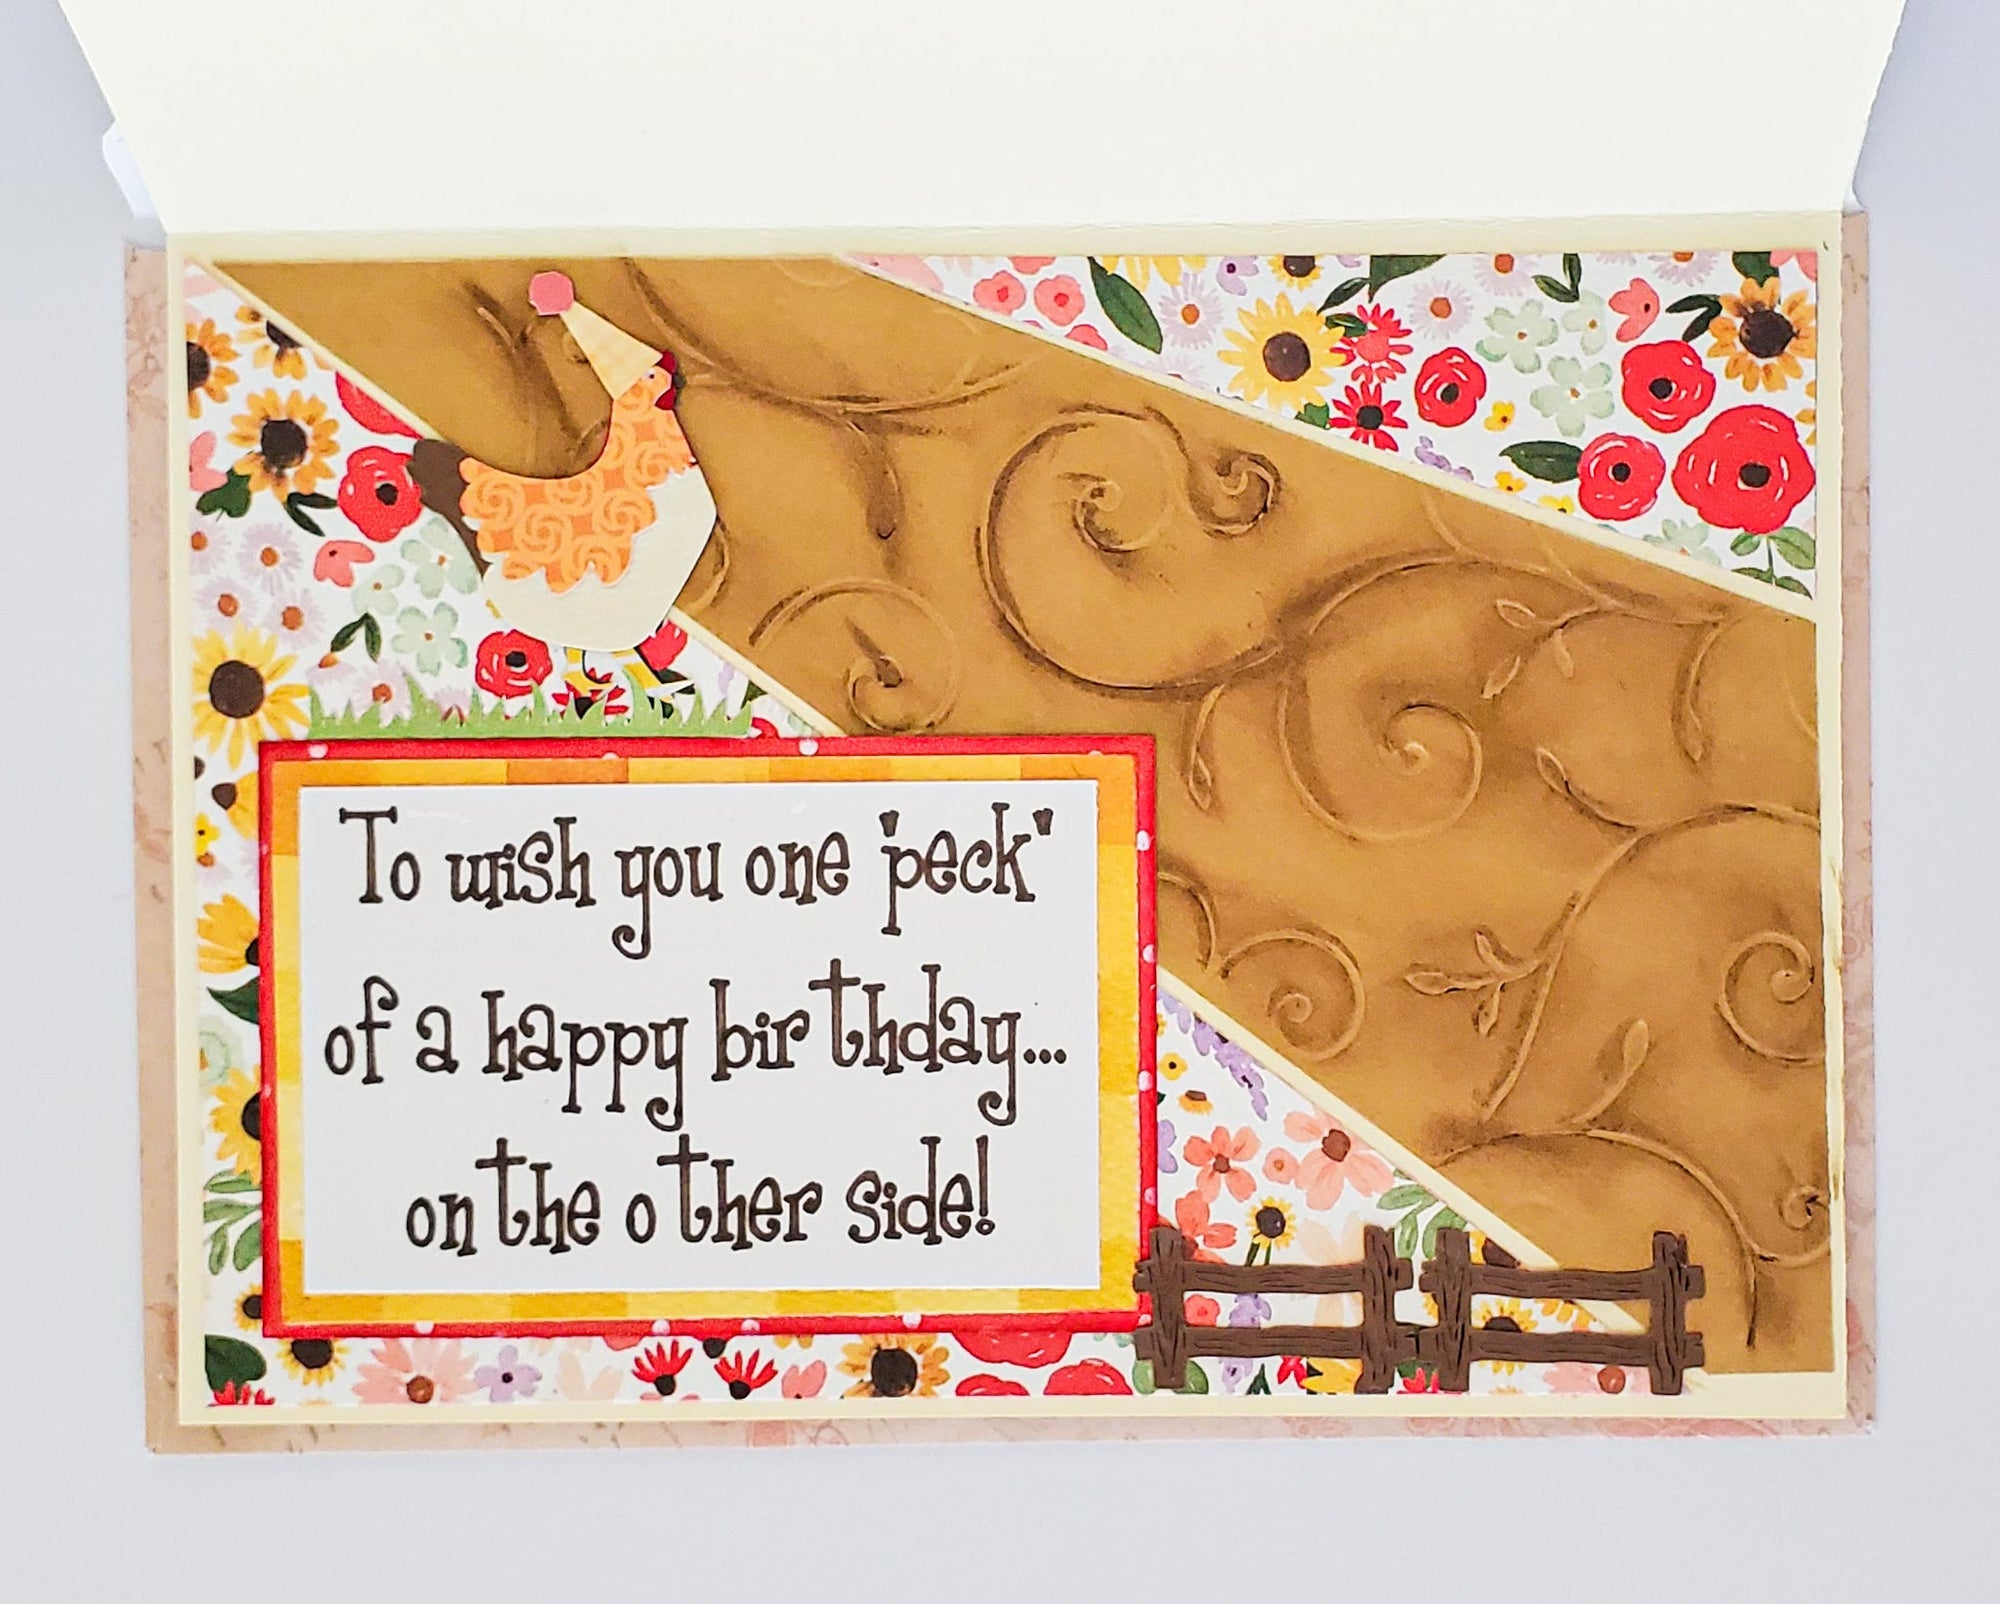 To wish you one "peck"
of a happy birthday...
on the other side!